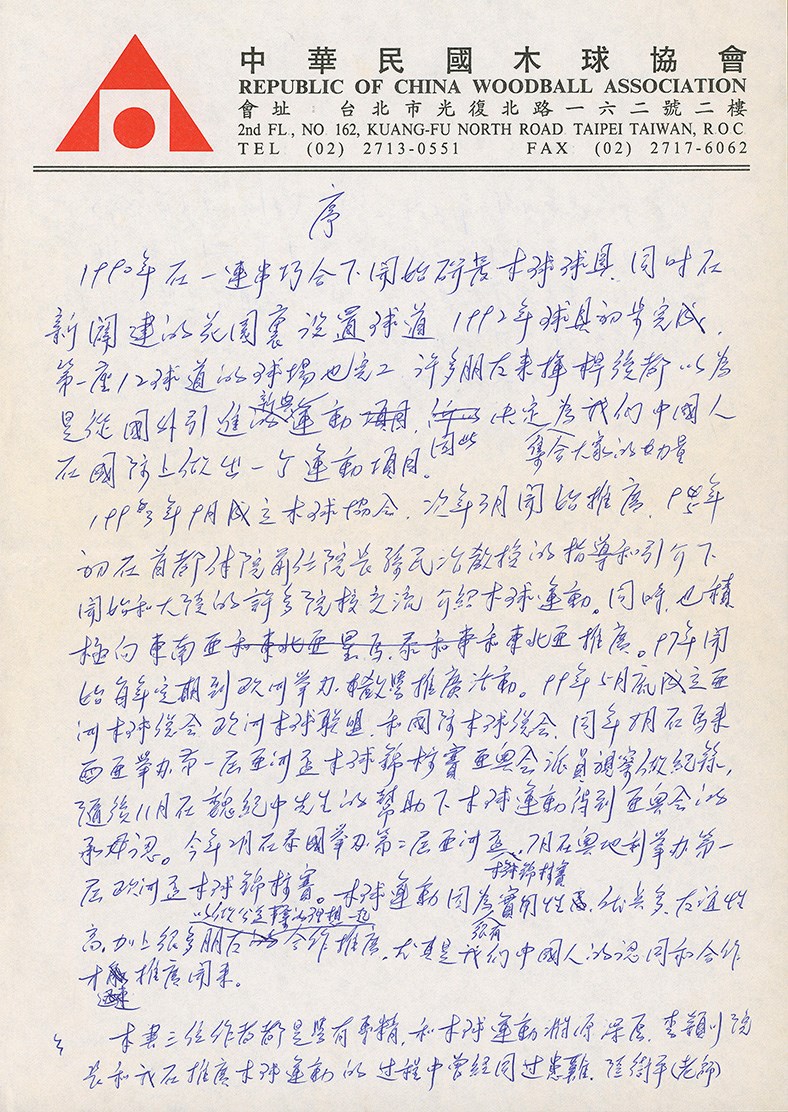 中華民國木球協會
REPUBLIC OF CHINA WOODBALL ASSOCIATION
會址：台北市光復北路一六二號二樓
2nd FL., NO. 162, KUANG-FU NORTH ROAD TAIPEI TAIWAN, R.O.C
TEL (02) 2713-0551 FAX (02) 2717-6062
序
1990年在一連串巧合下開始研發木球球具,同時在
新闢建的花園裏設置球道 1992年球具初步完成,
第一座12球道的球場也完工 許多朋友來揮桿後都以為
是從國外引進的新興運動項目,因此 決定為我們中國人
集合大家的力量
在國際上做出一个運動項目。
1993年9月成立木球協会,次年3月開始推廣,95年
初在首都体院前任院長孫民治教授的指導和引介下
開始和大陸的許多院校交流 介紹木球運動。同時,也積
極向東南亞和東北亞星馬,泰和東和東北亞推廣。97年開
始每年定期到欧洲举办 推廣活動。99年5月底成立亚
洲木球總会 欧洲木球联盟,和國际木球總会,同年7月在馬來
西亚举办第一屆亚洲盃木球錦标賽 亚奧会派員 做紀錄,
隨後11月在魏紀中先生的幫助下木球運動得到亚奧会的
承認。今年2月在泰國举办第二屆亚洲盃,7月在奧地利举办第一
木球錦标賽
屆欧洲盃木球錦标賽。木球運動因為實用性高,优点多,友誼性
高,加上很多朋友 合作推廣,尤其是我們中國人的認同和合作
才 推廣開来。
迅速
本書三位作者都是學有專精,和木球運動淵源深厚,李穎川院
長和我在推廣木球運動的过程中曾經同过患難,陸衛平(老師)